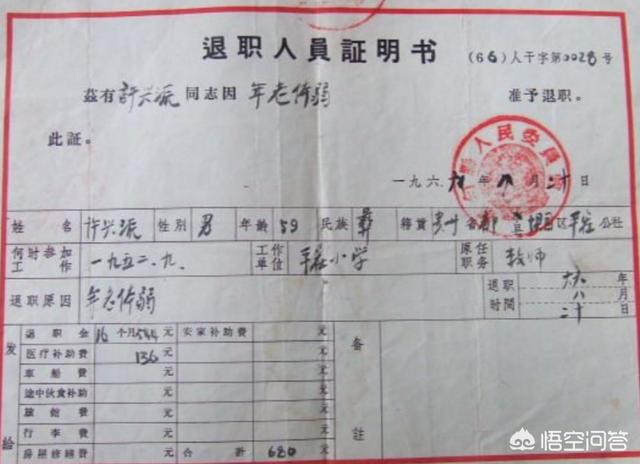 退职人員証明书
(66)人干字第0028号
兹有許兴派同志因年老体弱 准予退职。
此証。
人民委員
一九六六年八月二十日
姓名 許兴派 性别 男 年龄 59 民族 彝 籍貫 贵州省 县 区 公社
何时参加工作 一九五二.九. 工作单位 小学 原任职务 教师
退职原因 年老体弱 退职时间 六六年八月二十日
发給
退职金 16个月544元 安家补助費 元 备註
医疗补助費 136元 元
車船費 元 元
途中伙食补助 元 元
旅館費 元 元
行李費 元 元
房屋修繕費 元 合計 680元
悟空问答